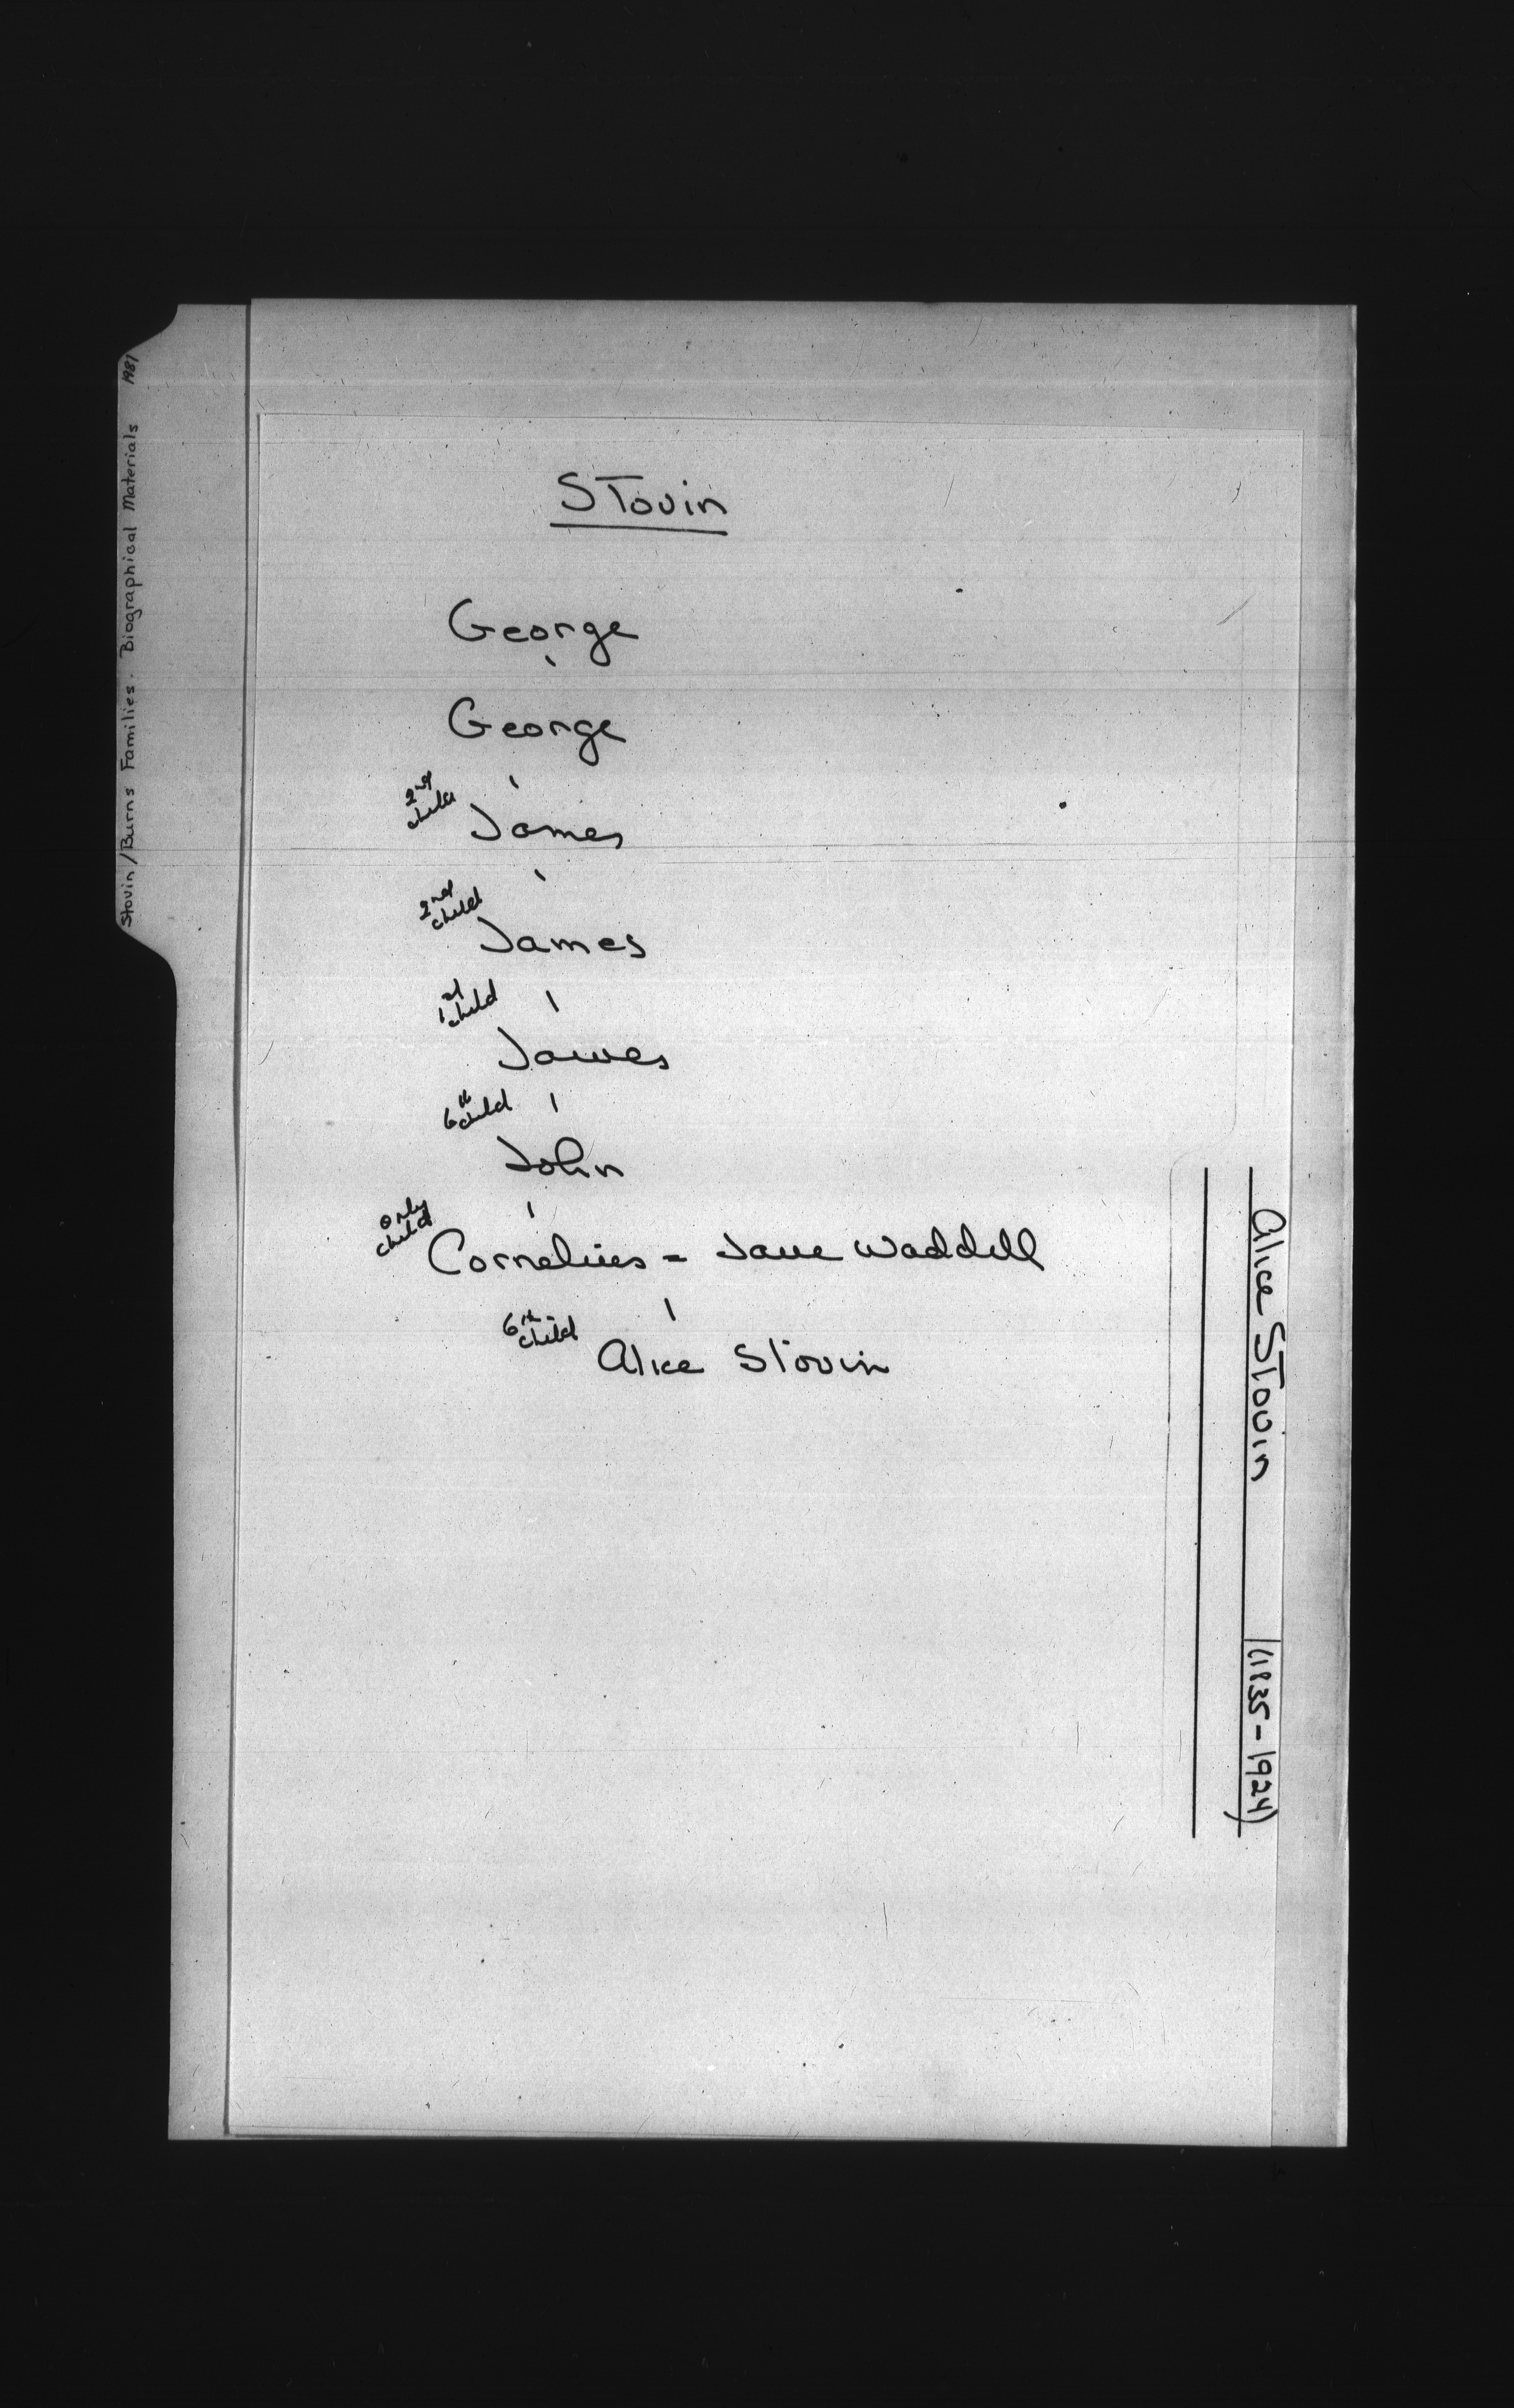 Stovin/Burns Families. Biographical Materials 1981
Stovin
George
George
2nd
child
James
2nd
child
James
1st
child
James
6th
child
John
only
child
Cornelius = Jane Waddell
6th
child
Alice Stovin
Alice Stovin (1835-1924)